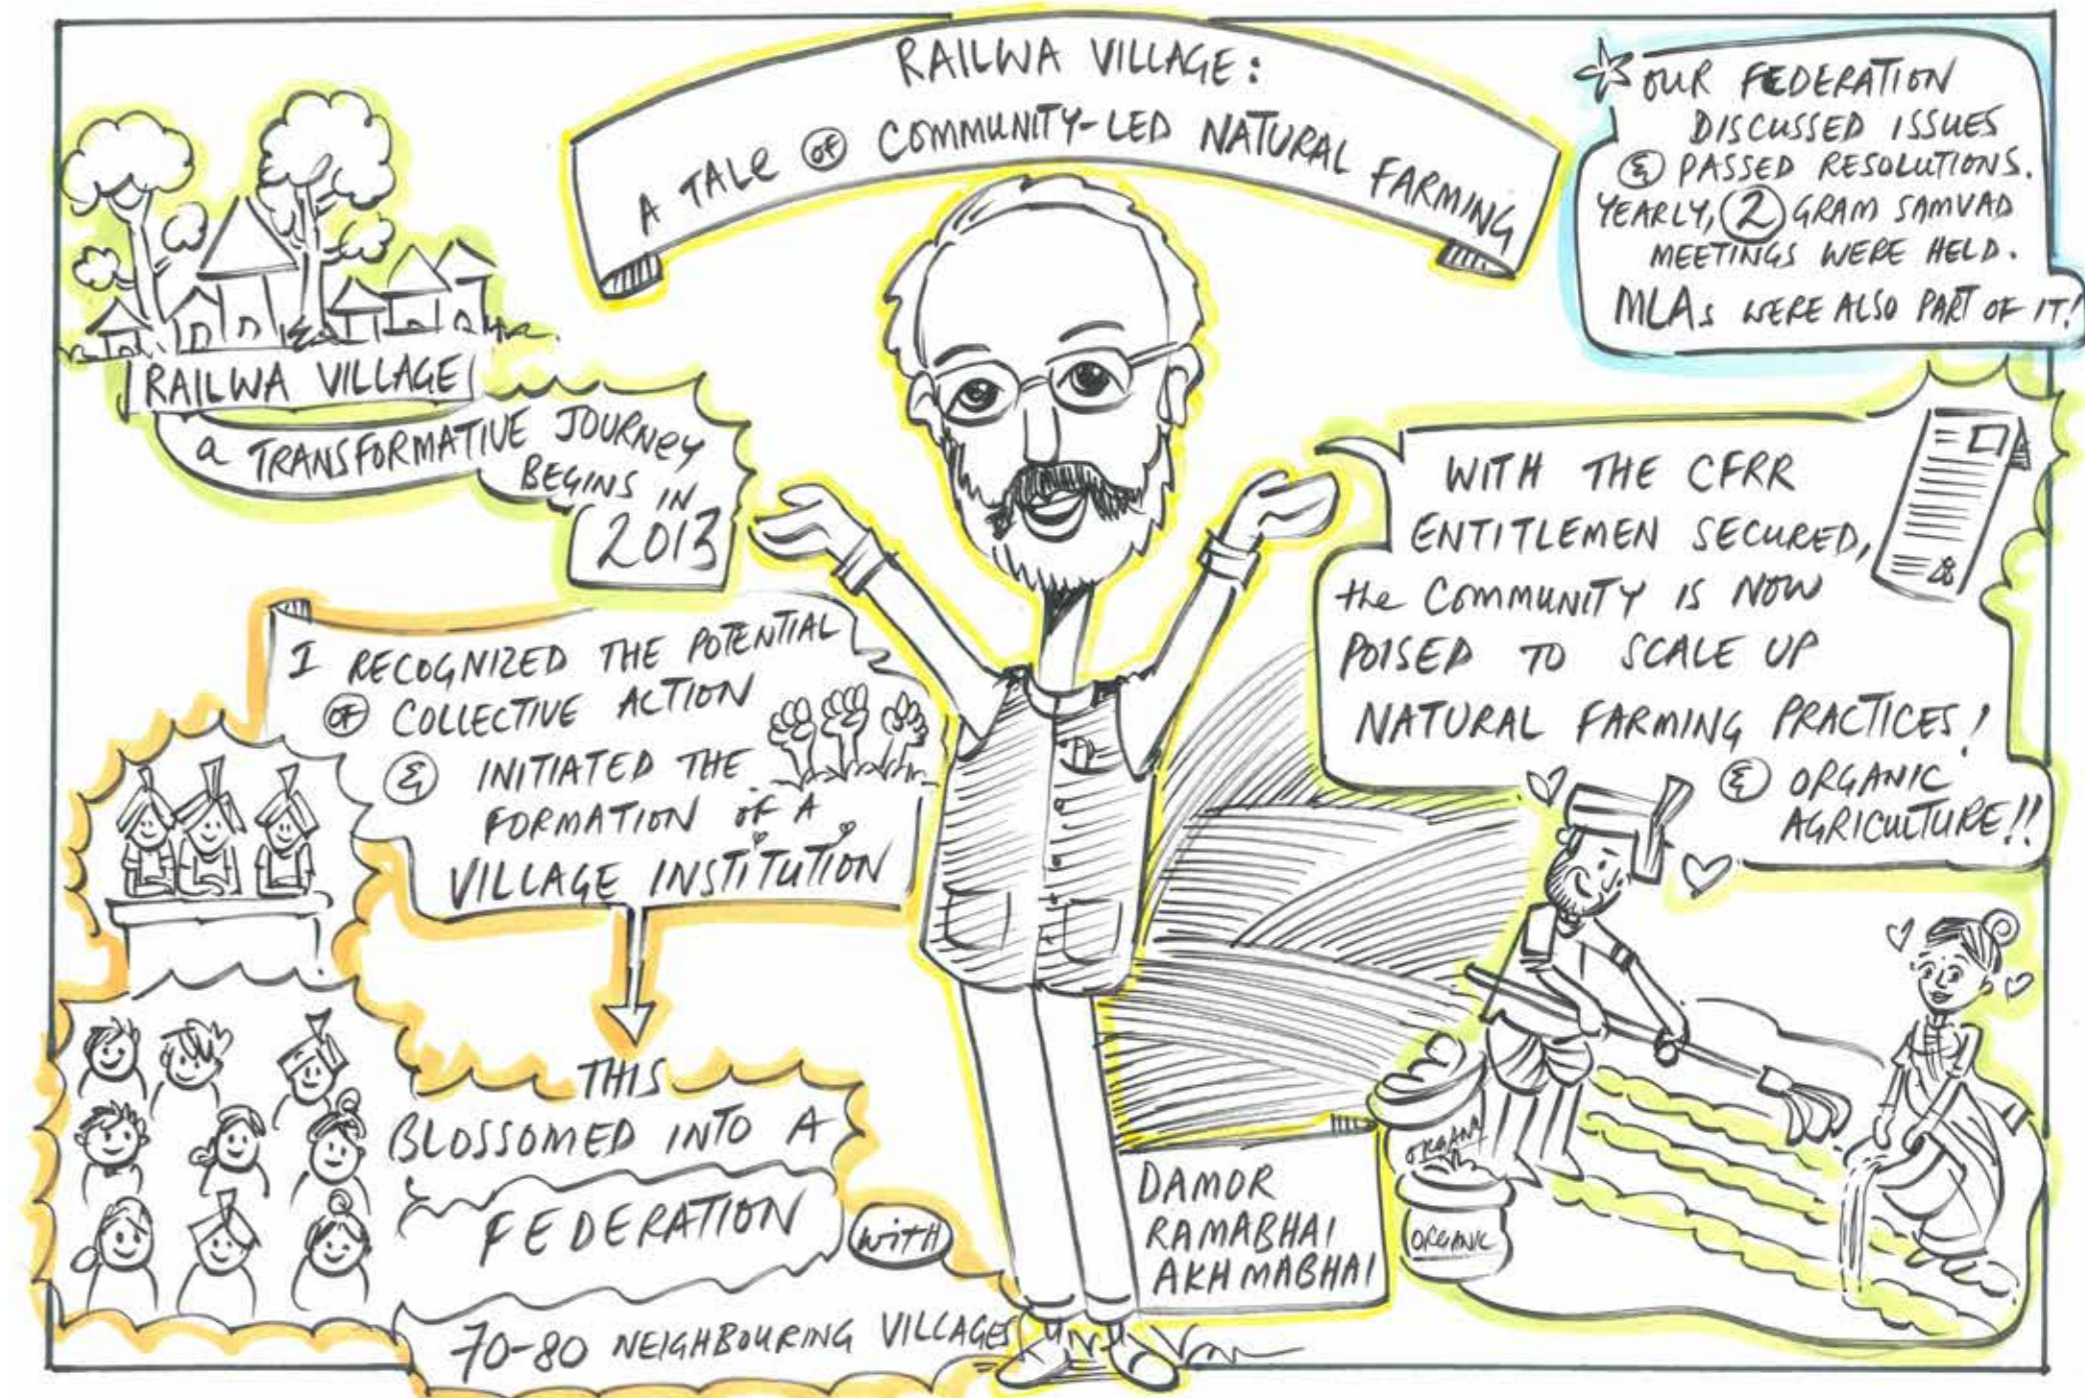 RAILWA VILLAGE:
A TALE OF COMMUNITY-LED NATURAL FARMING
RAILWA VILLAGE
a TRANSFORMATIVE JOURNEY
BEGINS IN
2013
I RECOGNIZED THE POTENTIAL
OF COLLECTIVE ACTION
& INITIATED THE
FORMATION OF A
VILLAGE INSTITUTION
THIS
BLOSSOMED INTO A
FEDERATION
WITH
70-80 NEIGHBOURING VILLAGES
OUR FEDERATION
DISCUSSED ISSUES
& PASSED RESOLUTIONS.
YEARLY, 2 GRAM SAMVAD
MEETINGS WERE HELD.
MLAs WERE ALSO PART OF IT!
WITH THE CFRR
ENTITLEMEN SECURED,
the COMMUNITY IS NOW
POISED TO SCALE UP
NATURAL FARMING PRACTICES!
& ORGANIC
AGRICULTURE!!
DAMOR
RAMABHAI
AKHMABHAI
ORGANIC